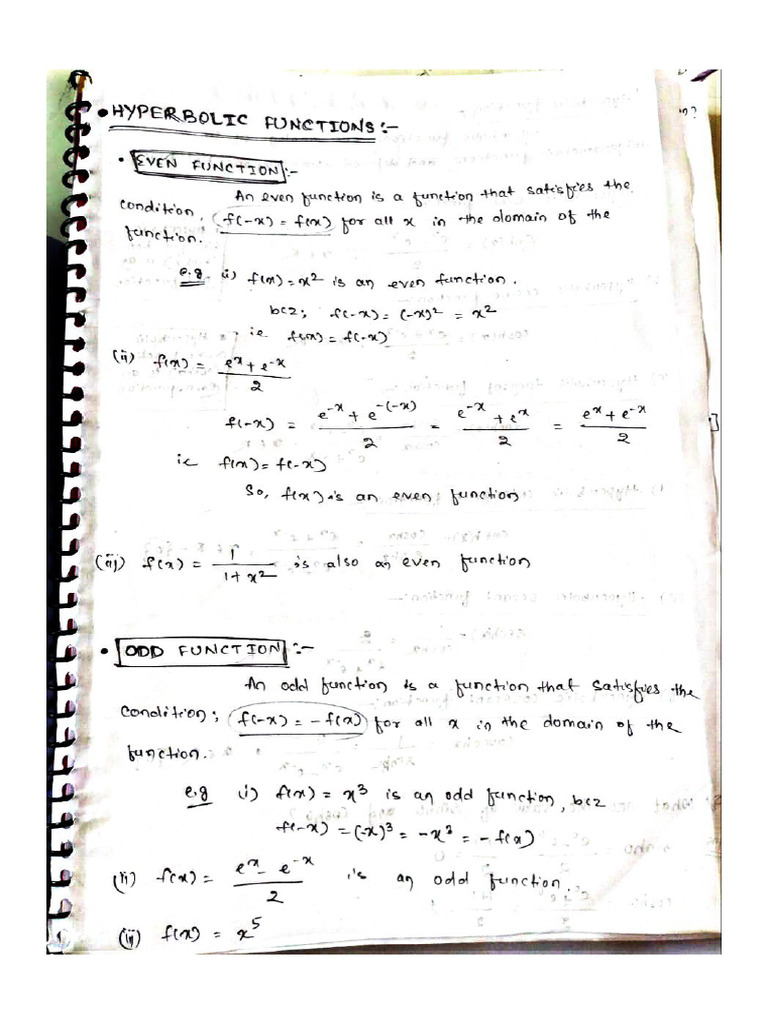 • HYPERBOLIC FUNCTIONS:-
• EVEN FUNCTION:-
An even function is a function that satisfies the
condition, f(-x) = f(x) for all x in the domain of the
function.
e.g i) f(x) = x² is an even function.
bcz; f(-x) = (-x)² = x²
ie f(x) = f(-x)
(ii) f(x) = (e^x + e^-x)/2
f(-x) = (e^-x + e^-(-x))/2 = (e^-x + e^x)/2 = (e^x + e^-x)/2
ie f(x) = f(-x)
So, f(x) is an even function
(iii) f(x) = 1/(1+x²) is also an even function
• ODD FUNCTION:-
An odd function is a function that satisfies the
condition; f(-x) = -f(x) for all x in the domain of the
function.
e.g (i) f(x) = x³ is an odd function, bcz
f(-x) = (-x)³ = -x³ = -f(x)
(ii) f(x) = (e^x - e^-x)/2 is an odd function.
(iii) f(x) = x⁵